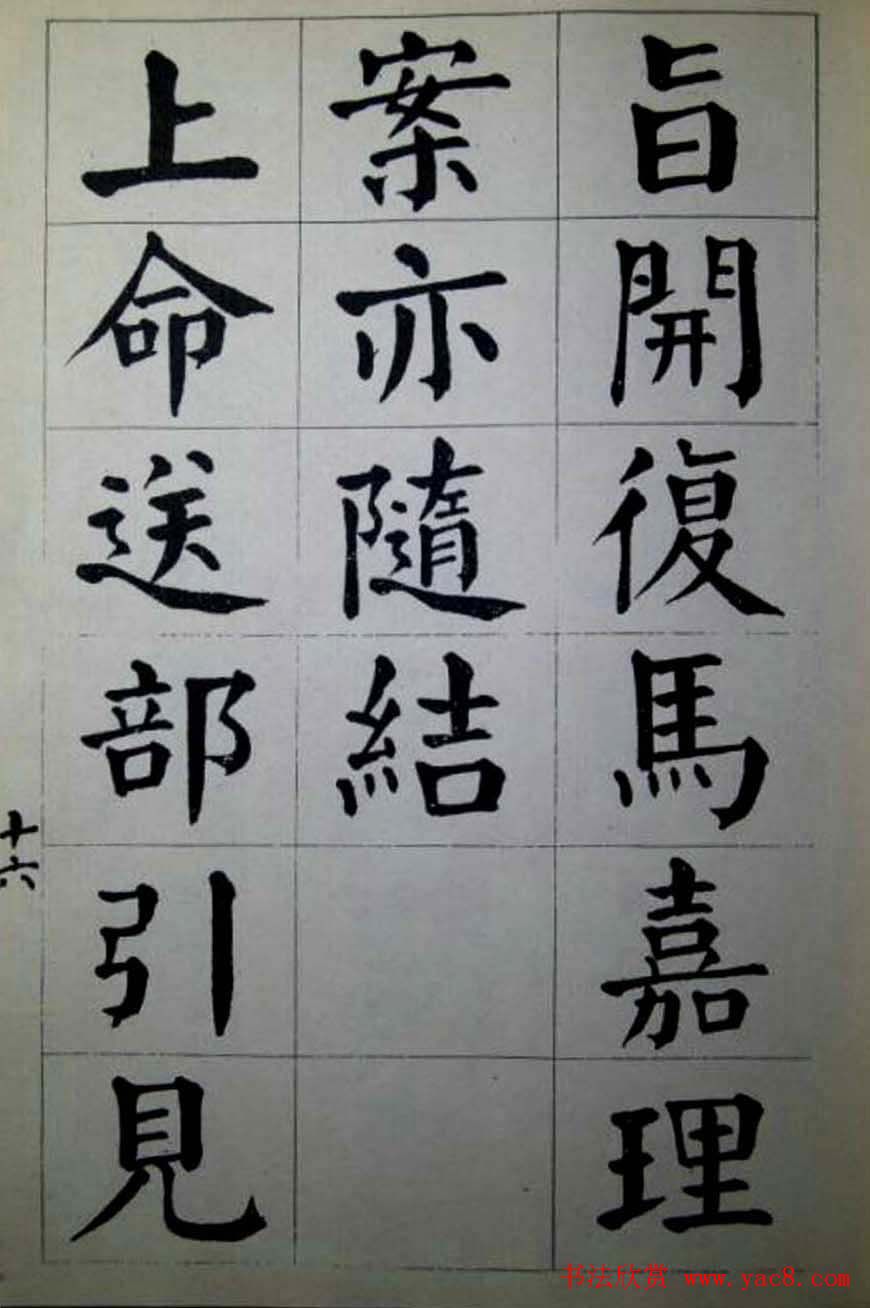 旨開復馬嘉理
案亦隨結
上命送部引見
十六
书法欣赏 www.yac8.com